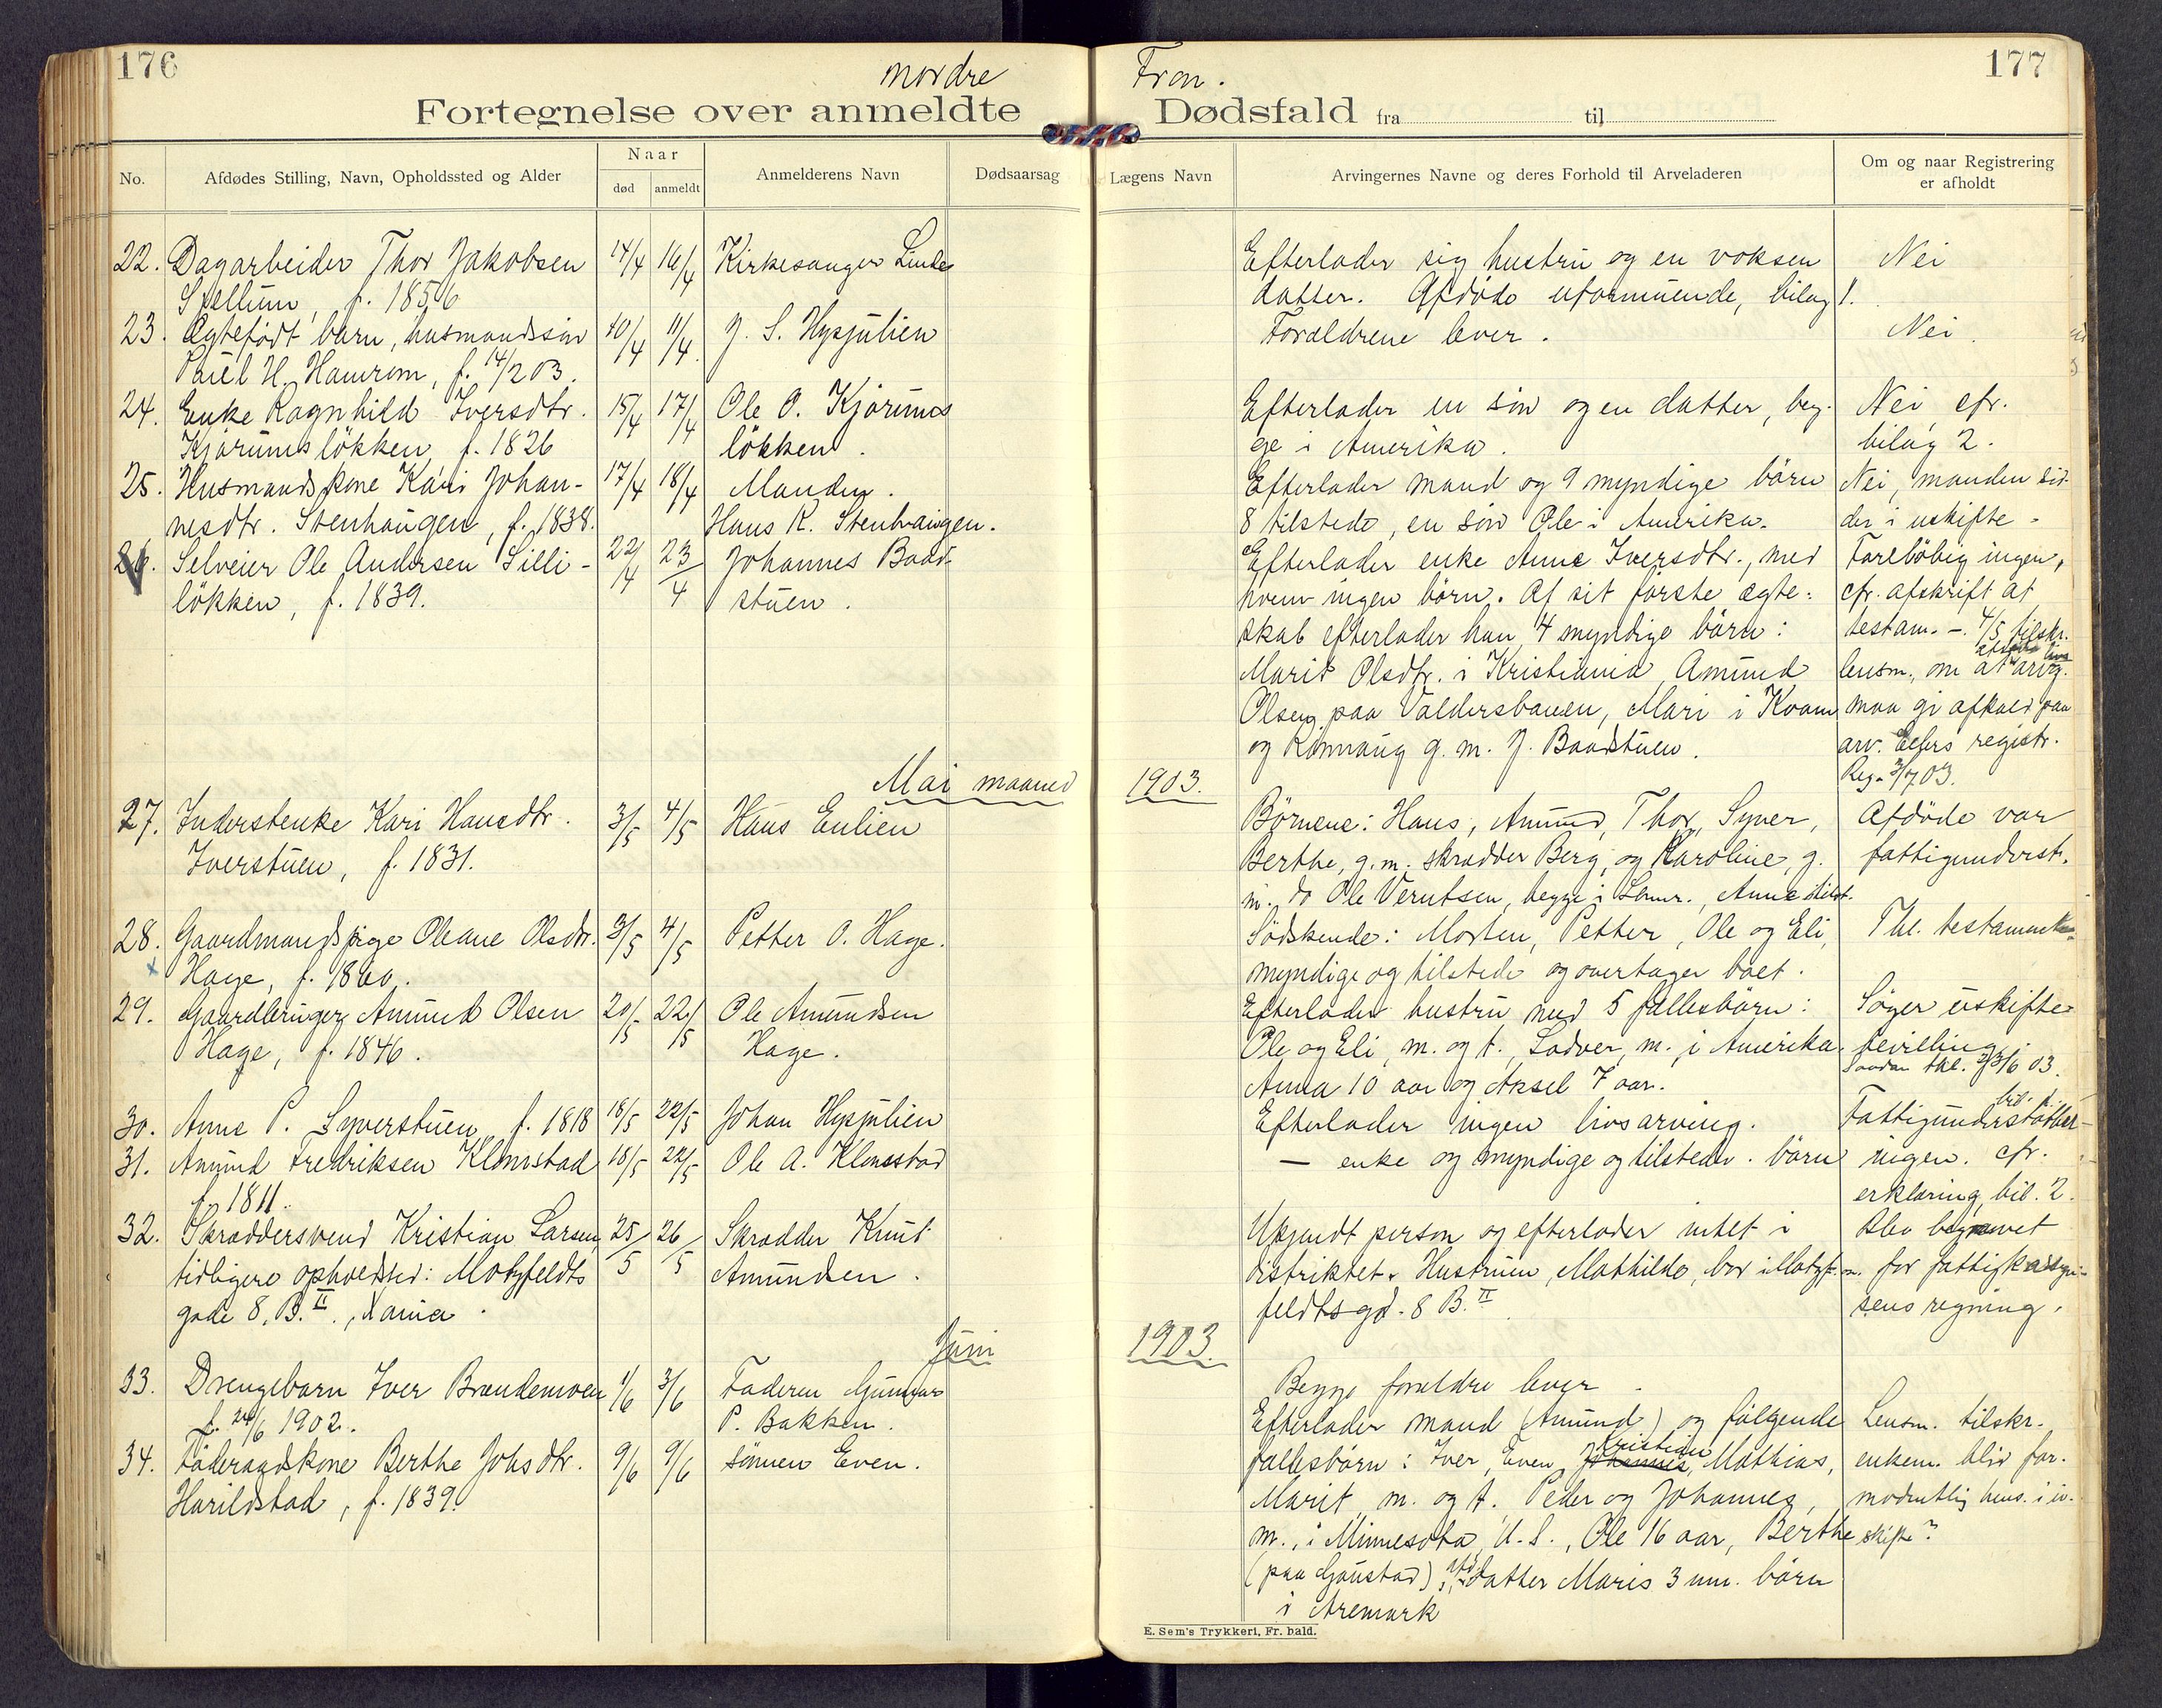 176
nordre
Fron.
177
Fortegnelse over anmeldte
Dødsfald fra til
No.
Afdødes Stilling, Navn, Opholdssted og Alder
Naar
død
anmeldt
Anmelderens Navn
Dødsaarsag
Lægens Navn
Arvingernes Navne og deres Forhold til Arveladeren
Om og naar Registrering
er afholdt
22. Dagarbeider Thor Jakobsen 14/4 16/4 Kirkesanger Linde Efterlader sig hustru og en voksen Nei
f. 1856 datter. Afdøde uformuende, bilag 1.
23. Ægtefødt barn, husmandssøn 10/4 11/4 J. S. Hysjulien Forældrene lever. Nei.
Paul H. Hamrom, f. 14/2 03.
24. Enke Ragnhild Iversdtr. 15/4 17/4 Ole O. Kjørums Efterlader en søn og en datter, beg- Nei, cfr.
Kjørumsløkken, f. 1826 løkken. ge i Amerika. bilag 2.
25. Husmandskone Kari Johan- 17/4 18/4 Manden. Efterlader mand og 9 myndige børn Nei, manden sid-
nesdtr. Stenhaugen, f. 1838. Hans K. Stenhaugen. 8 tilstede, en søn Ole i Amerika. der i uskifte.
26. Selveier Ole Andersen Lilli- 22/4 23/4 Johannes Baad- Efterlader enke Anne Iversdtr., med Foreløbig ingen,
løkken, f. 1839. stuen. hvem ingen børn. Af sit første ægte- cfr. afskrift af
skab efterlader han 4 myndige børn: testam. -. 4/5 tilskr.
Marit Olsdtr. i Kristiania, Amund lensm., om at arvg.
Olsen paa Valdersbanen, Mari i Kvam maa gi afkald paa
og Rønnaug g. m. J. Baadstuen. arv. Ellers registr.
Reg. 3/7 03.
Mai maaned 1903.
27. Inderstenke Kari Hansdtr. 3/5 4/5 Hans Enlien Børnene: Hans, Amund, Thor, Syver, Afdøde var
Iverstuen, f. 1831. Berthe, g. m. skrædder Berg, og Karoline, g. fattigunderst.
m. do Ole Verntsen, begge i Anne tilst.
28. Gaardmandspige Oleane Olsdtr. 3/5 4/5 Petter O. Hage. Sødskende: Morten, Petter, Ole og Eli, Thl. testament
Hage, f. 1860. myndige og tilstede og overtager boet.
29. Gaardbruger Amund Olsen 20/5 22/5 Ole Amundsen Efterlader hustru med 5 fællesbørn: Søger uskifte-
Hage, f. 1846. Hage. Ole og Eli, m. og t., Sadver, m., i Amerika, bevilling.
Anna 10 aar og Aksel 7 aar. Saadan thl. 3/6 03.
30. Anne P. Syverstuen, f. 1818 18/5 22/5 Johan Hysjulien Efterlader ingen livsarving. Fattigunderstøttet
31. Amund Fredriksen Klomstad 18/5 22/5 Ole A. Klomstad — enke og myndige og tilstedev. børn ingen. cfr.
f. 1811. erklæring, bil. 2.
32. Skræddersvend Kristian Larsen, 25/5 26/5 Skrædder Knut Ukjendt person og efterlader intet i Blev begravet
tidligere opholdssted: Motzfeldts Amundsen. distriktet. Hustruen, Mathilde, bor i Motz- for fattigkasse-
gade 8, B. II., Xania. feldtsgd. 8 B. II sens regning.
Juni 1903.
33. Drengebarn Iver Brændemoen 1/6 3/6 Faderen Gunnar Begge forældre lever.
f. 24/6 1902. P. Bakken.
34. Føderaadskone Berthe Johsdtr. 9/6 9/6 sønnen Even. Efterlader mand (Amund) og følgende Lensm. tilskr.
Harildstad, f. 1839. fællesbørn: Iver, Even, Johannes, Kristian Mathias, enkem. blir for-
Marit, m. og t. Peder og Johannes, modentlig hens. i u-
m., i Minnesota, U.S., Ole 16 aar, Berthe skifte?
(paa Gaustad), datter Maris 3 um. børn
i Aremark
E. Sem's Trykkeri, Fr. hald.